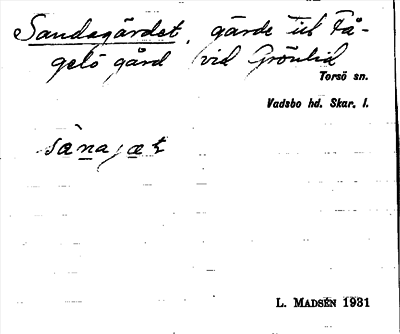 Sandagärdet, gärde till Få-
gelö gård (vid Grönlid
Torsö sn.
Vadsbo hd. Skar. l.
sànajæt
L. MADSÉN 1931